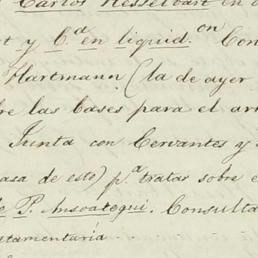 Carlos Hesselbart en
t y C.ª en liquid.on Con
Hartmann (la de ayer
re las bases para el arr
Junta con Cervantes y
asa de esto) p.ª tratar sobre e
e P. Insoategui. Consulta
stamentaria